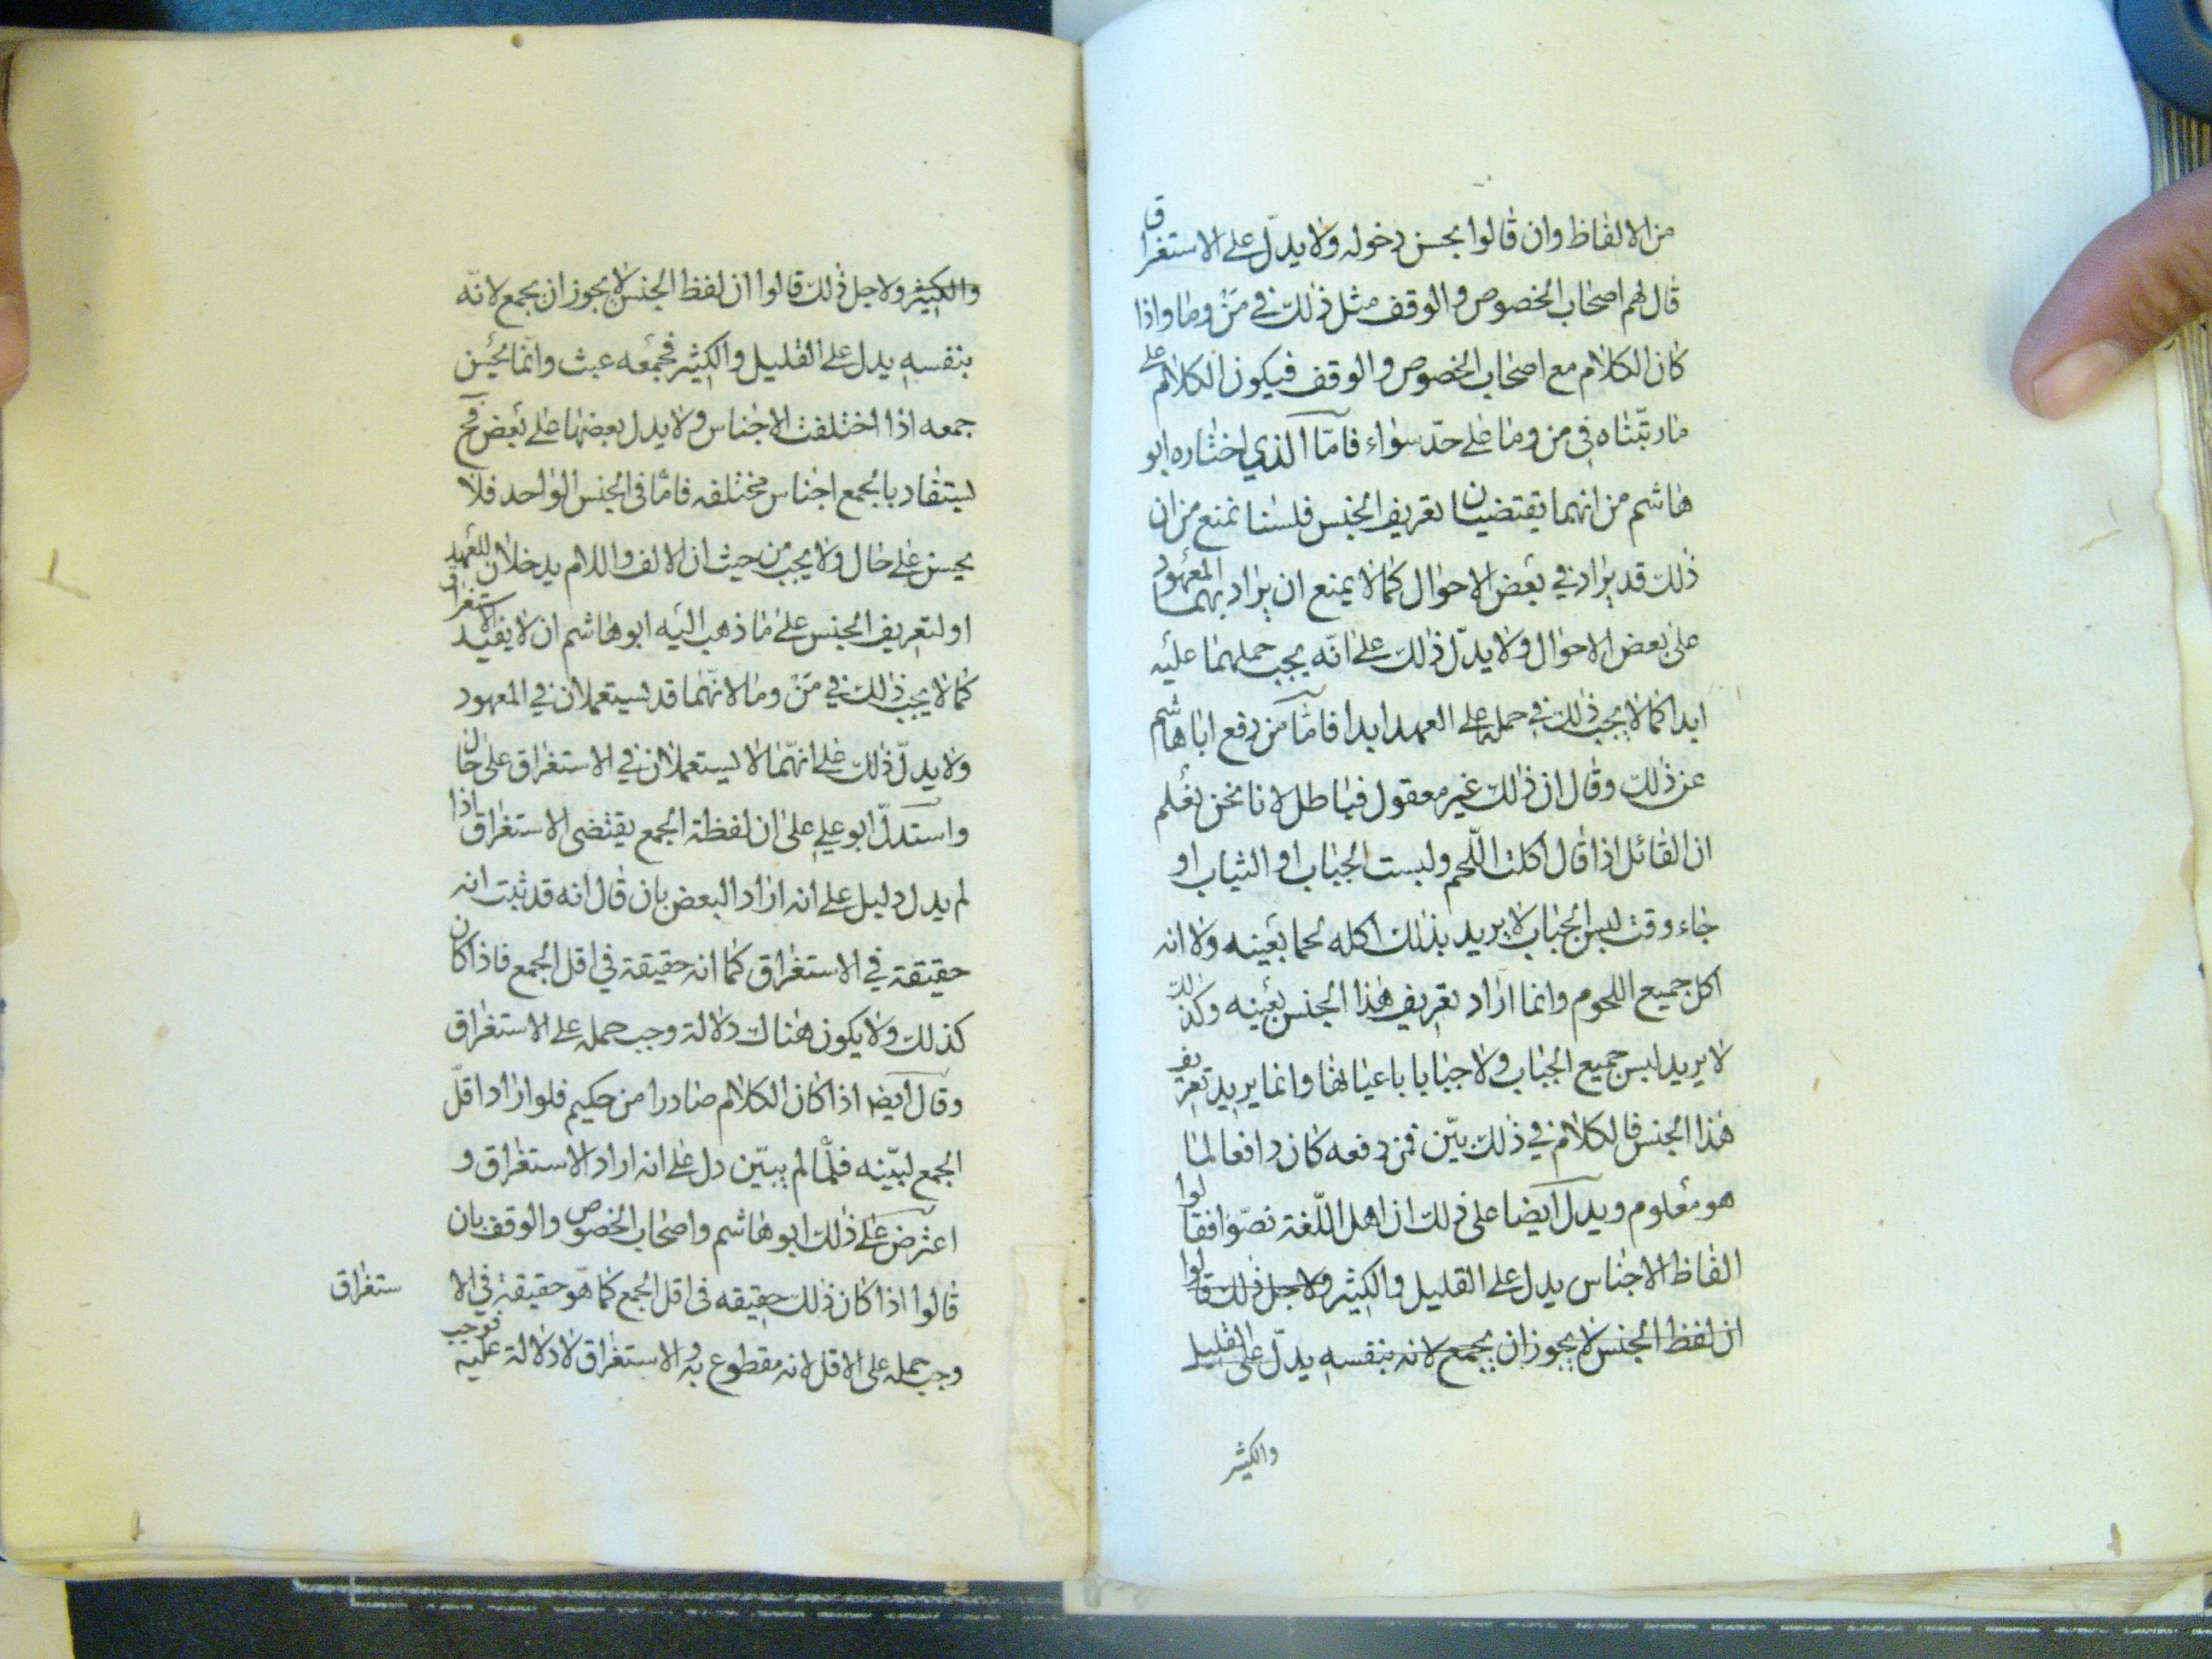 من الالفاظ وان قالوا يحسن دخوله ولا يدلّ على الاستغراق
قال لهم اصحاب الخصوص والوقف مثل ذلك في مَنْ وما واذا
كان الكلام مع اصحاب الخصوص والوقف فيكون الكلام على
ما رتّبناه في من وما على حدّ سواء فامّا الذي اختاره ابو
هاشم من انهما يقتضيان تعريف الجنس فلسنا نمنع من ان
ذلك قد يراد في بعض الاحوال كما لا يمنع ان يراد بهما المعهود
على بعض الاحوال ولا يدّل ذلك على انّه يجب حملهما عليه
ابدا كما لا يجب ذلك في حمله على العهد ابدا فامّا من دفع ابا هاشم
عن ذلك وقال ان ذلك غير معقول فباطل لانا نحن نعلم
ان القائل اذا قال اكلت اللّحم ولبست الجباب او الثياب او
جاء وقت لبس الجباب لا يريد بذلك اكله لحما بعينه ولا انه
اكل جميع اللحوم وانما اراد تعريف هذا الجنس بعينه وكذلك
لا يريد لبس جميع الجباب ولا جبابا باعيانها وانما يريد تعريف
هذا الجنس فالكلام في ذلك بيّن فمن دفعه كان دافعا لما
هو معلوم ويدل ايضا على ذلك ان اهل اللّغة نصّوا فقالوا
الفاظ الاجناس يدل على القليل والكثير ولاجل ذلك قالوا
ان لفظ الجنس لا يجوز ان يجمع لانه بنفسه يدلّ على القليل
والكثير
والكثير ولاجل ذلك قالوا ان لفظ الجنس لا يجوز ان يجمع لانّه
بنفسه يدل على القليل والكثير فجمعه عبث وانّما يحسن
جمعه اذا اختلفت الاجناس ولا يدل بعضها على بعض فح
يستفاد بالجمع اجناس مختلفه فامّا في الجنس الواحد فلا
يحسن على حال ولا يجب من حيث ان الالف واللام يدخلان للعهد
او لتعريف الجنس على ما ذهب اليه ابو هاشم ان لا يفيد الاستغراق
كما لا يجب ذلك في مَنْ وما لانّهما قد يستعملان في المعهود
ولا يدلّ ذلك على انهّما لا يستعملان في الاستغراق على حال
واستدلّ ابو علي على ان لفظة الجمع يقتضى الاستغراق اذا
لم يدل دليل على انه اراد البعض بان قال انه قد ثبت انه
حقيقة في الاستغراق كما انه حقيقة في اقل الجمع فاذا كان
كذلك ولا يكون هناك دلالة وجب حمله على الاستغراق
وقال ايضا اذا كان الكلام صادرا من حكيم فلو اراد اقلّ
الجمع لبيّنه فلمّا لم يبيّن دل على انه اراد الاستغراق و
اعترض على ذلك ابو هاشم واصحاب الخصوص والوقف بان
قالوا اذا كان ذلك حقيقه في اقل الجمع كما هو حقيقة في الا ستغراق
فوجب
وجب حمله على الاقل لانه مقطوع به و الاستغراق لا دلالة عليه